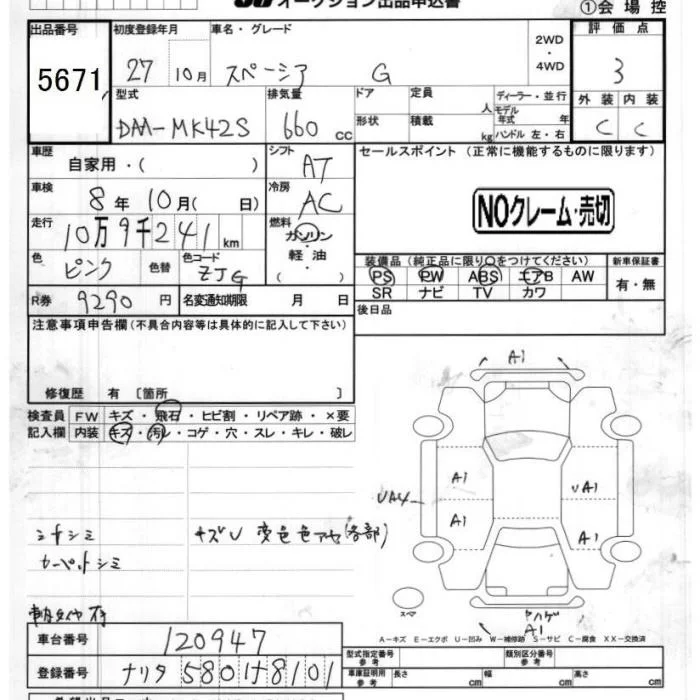 オークション出品申込書
①会場控
出品番号 初度登録年月 車名・グレード 2WD・4WD 評価点
5671 27 10月 スペーシア G 3
型式 排気量 ドア 定員 人 ディーラー・並行 外装 内装
DAA-MK42S 660 CC 形状 積載 kg モデル年式 年 ハンドル 左・右 C C
車歴 シフト セールスポイント (正常に機能するものに限ります)
自家用・( ) AT
車検 冷房
8年 10月( 日) AC NOクレーム・売切
走行 燃料
10万9千241 km ガソリン・軽油 ( )
色 色替 色コード 装備品 (純正品に限り○をつけてください) 新車保証書
ピンク ZJG PS PW ABS エアB AW 有・無
SR ナビ TV カワ
R券 9290円 名変通知期限 月 日 後日品
注意事項申告欄(不具合内容等は具体的に記入して下さい)
修復歴 有 〔箇所 〕
検査員 FW キズ・飛石・ヒビ割・リペア跡・×要
記入欄 内装 キズ・汚レ・コゲ・穴・スレ・キレ・破レ
A1
A1 UA1
UA4
A1 A1
シートシミ キズU 変色色アセ(各部)
カーペットシミ
スペア
ヤハゲ
A1
A−キズ E−エクボ U−凹み W−補修跡 S−サビ C−腐食 XX−交換済
車台番号 120947
型式指定番号 参考 類別区分番号 参考
登録番号 ナリタ 580 け 8101
車庫証明用 参考 長さ cm 幅 cm 高さ cm